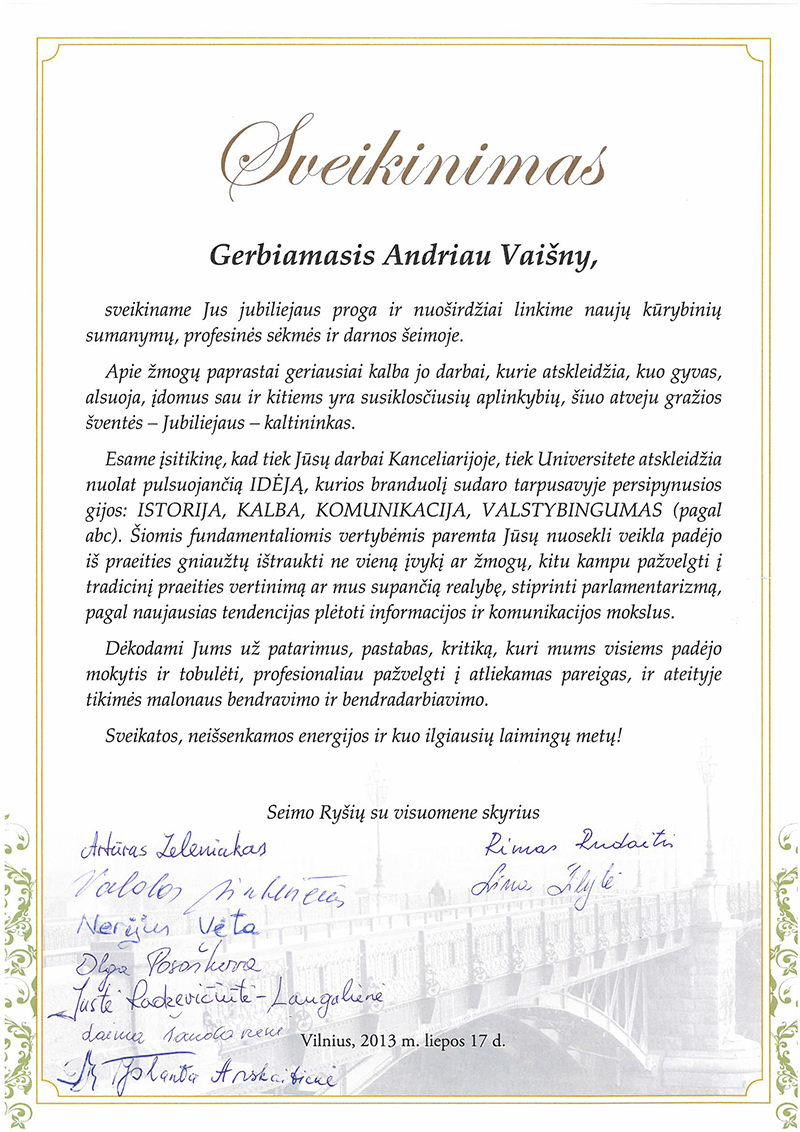 Sveikinimas
Gerbiamasis Andriau Vaišny,
sveikiname Jus jubiliejaus proga ir nuoširdžiai linkime naujų kūrybinių
sumanymų, profesinės sėkmės ir darnos šeimoje.
Apie žmogų paprastai geriausiai kalba jo darbai, kurie atskleidžia, kuo gyvas,
alsuoja, įdomus sau ir kitiems yra susiklosčiusių aplinkybių, šiuo atveju gražios
šventės – Jubiliejaus – kaltininkas.
Esame įsitikinę, kad tiek Jūsų darbai Kanceliarijoje, tiek Universitete atskleidžia
nuolat pulsuojančią IDĖJĄ, kurios branduolį sudaro tarpusavyje persipynusios
gijos: ISTORIJA, KALBA, KOMUNIKACIJA, VALSTYBINGUMAS (pagal
abc). Šiomis fundamentaliomis vertybėmis paremta Jūsų nuosekli veikla padėjo
iš praeities gniaužtų ištraukti ne vieną įvykį ar žmogų, kitu kampu pažvelgti į
tradicinį praeities vertinimą ar mus supančią realybę, stiprinti parlamentarizmą,
pagal naujausias tendencijas plėtoti informacijos ir komunikacijos mokslus.
Dėkodami Jums už patarimus, pastabas, kritiką, kuri mums visiems padėjo
mokytis ir tobulėti, profesionaliau pažvelgti į atliekamas pareigas, ir ateityje
tikimės malonaus bendravimo ir bendradarbiavimo.
Sveikatos, neišsenkamos energijos ir kuo ilgiausių laimingų metų!
Seimo Ryšių su visuomene skyrius
Artūras Zeleniakas
Rimas Rudaitis
Lina
Nerijus Vėta
Olga Posaškova
Justė Radzevičiūtė-Laugalienė
daima
Jolanta Anskaitienė
Vilnius, 2013 m. liepos 17 d.